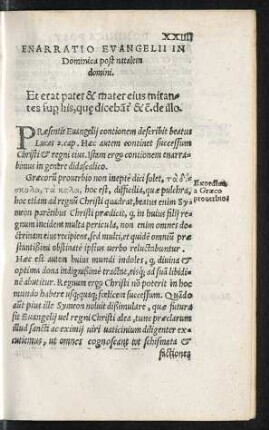 XXIIII
ENARRATIO EVANGELII IN
Dominica post natalem
domini.
Et erat pater & mater eius miran-
tes sup his, que dicebāt̄ & c̄. de illo.
PRæsentis Euangelij contionem describit beatus
Lucas 2. cap. Hæc autem continet successum
Christi & regni eius. Istam ergo contionem enarra-
bimus in genere didascalico.
Græcorū prouerbio non ineptè dici solet,
κολα, τὰ καλα, hoc est, difficilia, quæ pulchra,
hoc etiam ad regnū Christi quadrat, beatus enim Sy-
meon parentibus Christi prædicit, q̃ in huius filij re-
gnum incident multa pericula, non enim omnes do-
ctrinam eius recipient, sed multi, et quidē omniū præ-
stantißimi obstinatè ipsius uerbo reluctabuntur.
Hæc est autem huius mundi indoles, q̃ diuina et
optima dona indignißimè tractat, eisq; ad suā libidi-
nē abutitur. Regnum ergo Christi nō poterit in hoc
mundo habere usq;quaq; fœlicem successum. Quādo
aūt pius ille Symeon noluit dissimulare, quæ futura
sit Euangelij uel regni Christi alea, tunc præclarum
illud sancti ac eximij uiri uaticinium diligenter ex-
cutiemus, ut omnes cognoscant tot schismata &
factiones
Exordium
à Græco
prouerbio